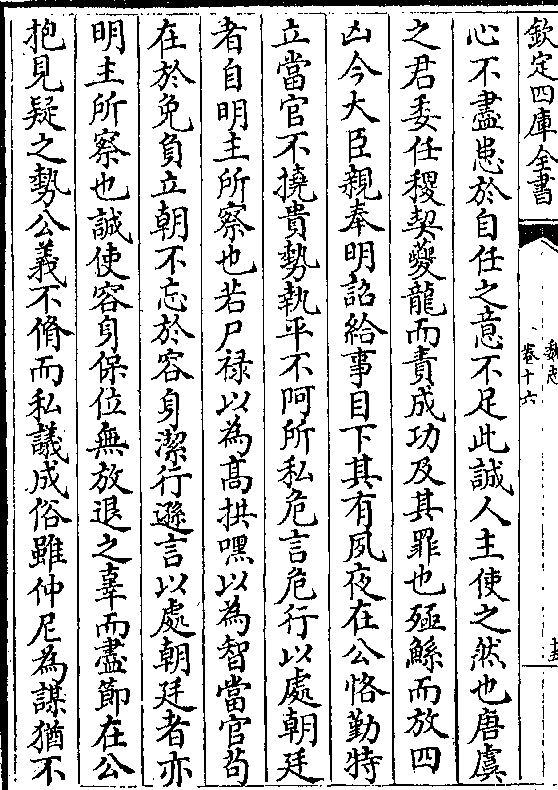 欽定四庫全書
魏志
卷十六
心不盡患於自任之意不足此誠人主使之然也唐虞
之君委任稷契夔龍而責成功及其罪也殛鯀而放四
凶今大臣親奉明詔給事目下其有夙夜在公恪勤特
立當官不撓貴勢執平不阿所私危言危行以處朝廷
者自明主所察也若尸禄以為高拱嘿以為智當官苟
在於免負立朝不忘於容身潔行遜言以處朝廷者亦
明主所察也誠使容身保位無放退之辜而盡節在公
抱見疑之勢公義不脩而私議成俗雖仲尼為謀猶不